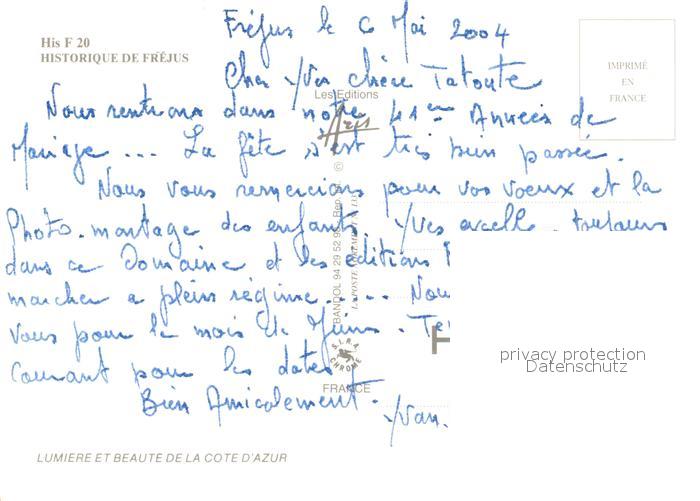 Fréjus le 6 Mai 2004
His F 20
HISTORIQUE DE FRÉJUS
IMPRIMÉ
EN
FRANCE
Cher Yves chère Tatoute
Les Editions
Nous rentrons dans notre 41ème Années de
Mariage ... La fête s'est très bien passée.
Nous vous remercions pour vos voeux et la
Photo-montage des enfants. Yves excelle toujours
dans ce Domaine et les éditions
marcher a plein régime ..... Nou
vous pour le mois de Juin. Te
Courant pour les dates
Bien Amicalement.
Yvan.
BANDOL 94 29 52
S.L.R.A.
CHROME
FRANCE
privacy protection
Datenschutz
LUMIERE ET BEAUTE DE LA COTE D'AZUR